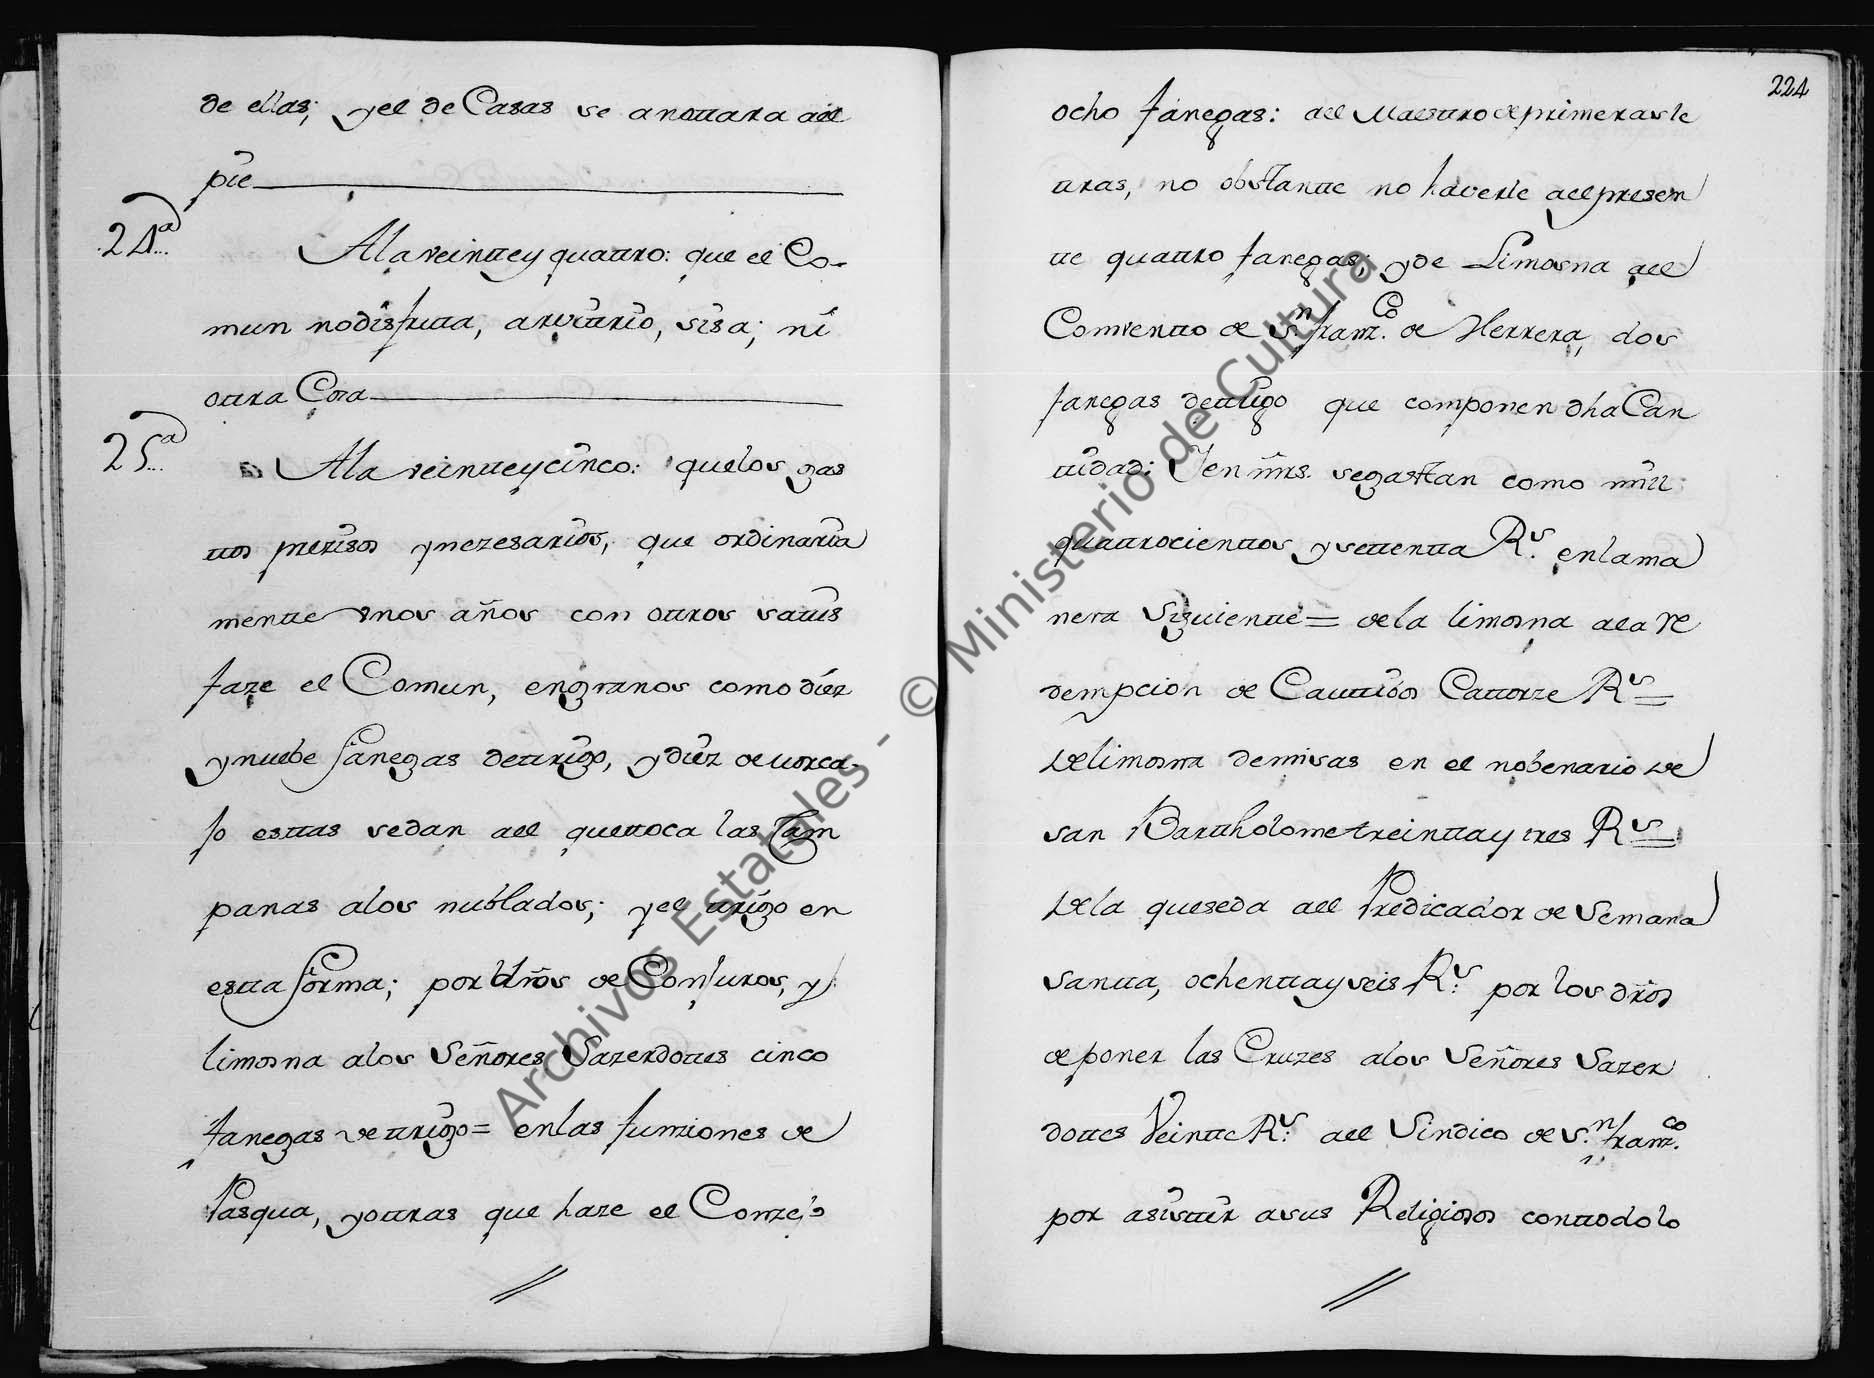 de ellas; y el de Casas se anottara all
pie
24ª
A la veintte y quattro: que el Co-
mun no disfrutta, arvittrio, sisa; ni
ottra Cosa
25ª
A la veintte y cinco: que los gas
ttos precisos y nezesarios, que ordinaria
mentte unos años con ottros sattis
faze el Comun, en granos como diez
y nuebe fanegas de ttrigo, y diez de zorca-
jo esttas se dan all que ttoca las Cam
panas a los nublados; y el ttrigo en
estta forma; por dr̃os de Conjuros, y
limosna a los Señores Sazerdottes cinco
fanegas de ttrigo = en las funziones de
Pasqua, y ottras que haze el Conzejo
224
ocho fanegas: all Maesttro de primeras le
ttras, no obstantte no haverle all presen
tte quattro fanegas; y de Limosna all
Comventto de Sn. Franzco. de Herrera, dos
fanegas de ttrigo que componen dha Can
ttidad: Y en mrs. se gastan como mill
quattrocienttos y settentta Rs. en la ma
nera Siguientte = de la limosna a la Re
dempcion de Cauttibos Cattorze Rs =
De limosna de misas en el nobenario de
san Barttholome treintta y tres Rs =
De la que se da all Predicador de Semana
Santta, ochentta y seis Rs. por los dr̃os
de poner las Cruzes a los Señores Sazer
dottes Veintte Rs. all Sindico de Sn. Franzco.
por asisttir a sus Religiosos con ttodo lo
Archivos Estatales - © Ministerio de Cultura